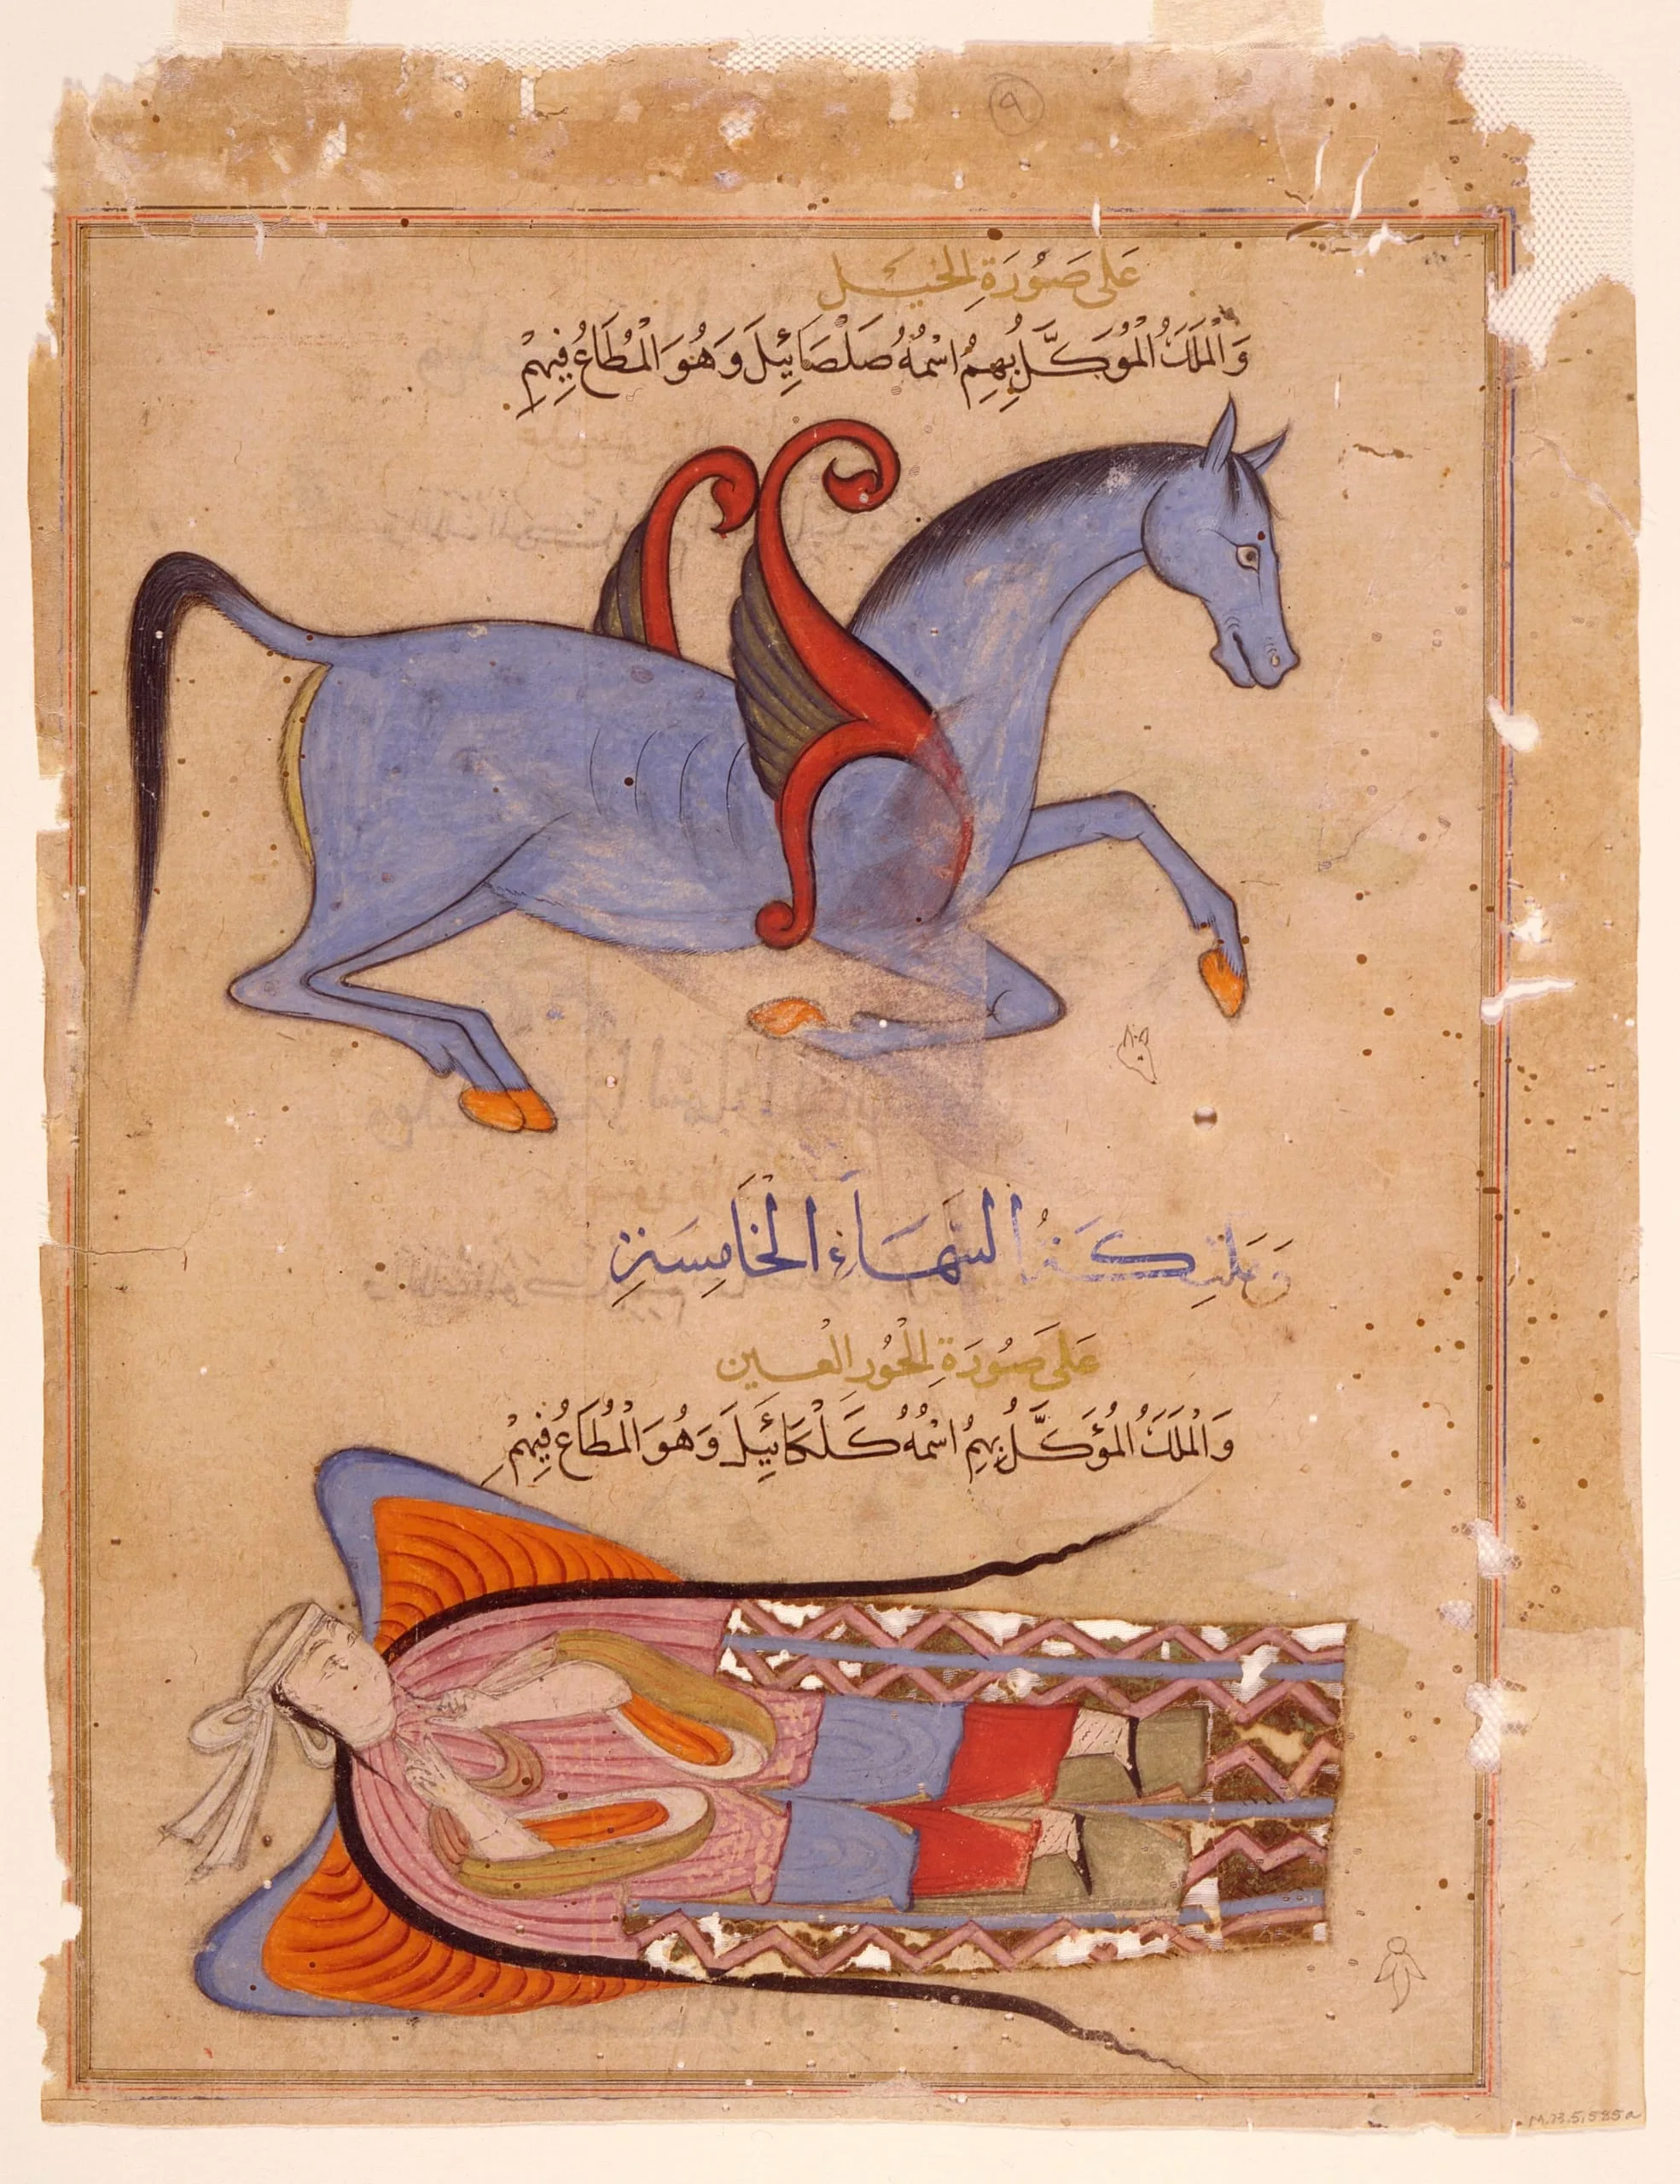 ٩
عَلَى صُورَةِ الْخَيْلِ
وَالْمَلَكُ الْمُوَكَّلُ بِهِمُ اسْمُهُ صَلْصَائِيلُ وَهُوَ الْمُطَاعُ فِيهِمْ
وَمَلٰئِكَةُ السَّمَاءِ الْخَامِسَةِ
عَلَى صُورَةِ الْحُورِ الْعِينِ
وَالْمَلَكُ الْمُؤَكَّلُ بِهِمُ اسْمُهُ كَلْكَائِيلَ وَهُوَ الْمُطَاعُ فِيهِمْ
M.73.5.585a